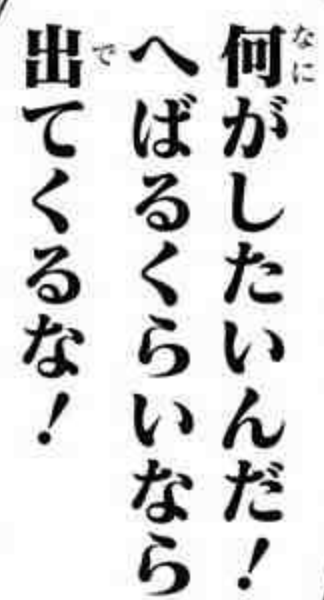 何がしたいんだ！
へばるくらいなら
出てくるな！
なに
で